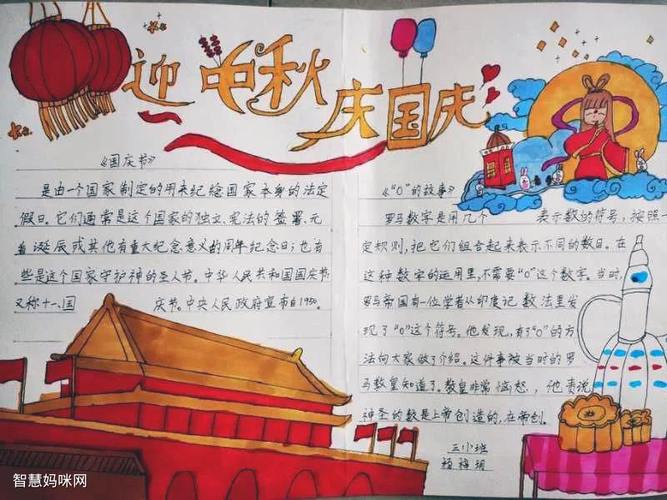 迎中秋庆国庆
《国庆节》
是由一个国家制定的用来纪念国家本身的法定
假日。它们通常是这个国家的独立、宪法的签署、元
首诞辰或其他有重大纪念意义的周年纪念日；也有
些是这个国家守护神的圣人节。中华人民共和国国庆节
又称十一、国 庆节。中央人民政府宣布自1950。
《"0"的故事》
罗马数字是用几个 表示数的符号，按照一
定规则，把它们组合起来表示不同的数目。在
这种数字的运用里，不需要"0"这个数字。当时，
罗马帝国有一位学者从印度记数法里发
现了"0"这个符号。他发现，有了"0"的方
法向大家做了介绍。这件事被当时的罗
马教皇知道了。教皇非常恼怒，他斥说，
神圣的数是上帝创造的，在帝创。
三小班
杨
智慧妈咪网